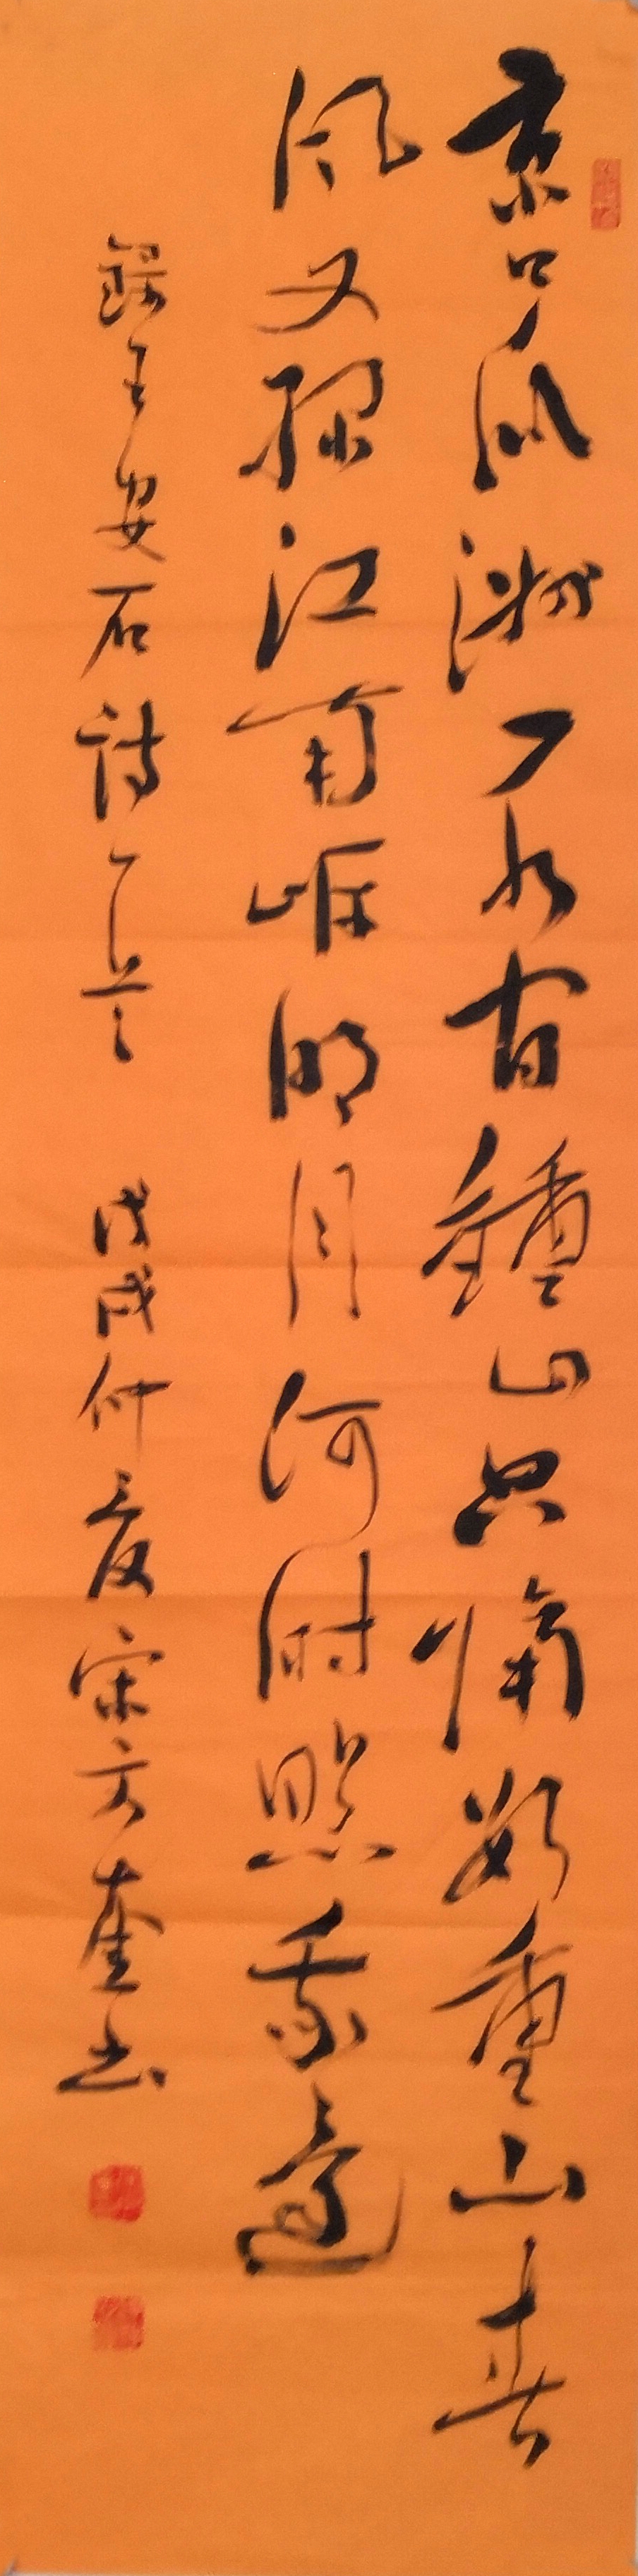 京口瓜洲一水間鐘山只隔數重山春
風又緑江南岸明月何時照我還
錄王安石詩一首 戊戌仲夏宋文奎書